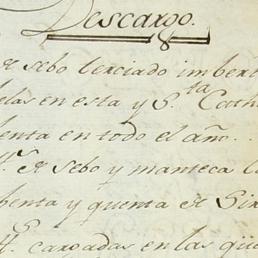 Descargo.
sebo terciado imbert
elas en esta y S.ta Cath
enta en todo el año.
sebo y manteca
benta y quenta
cargadas en las que